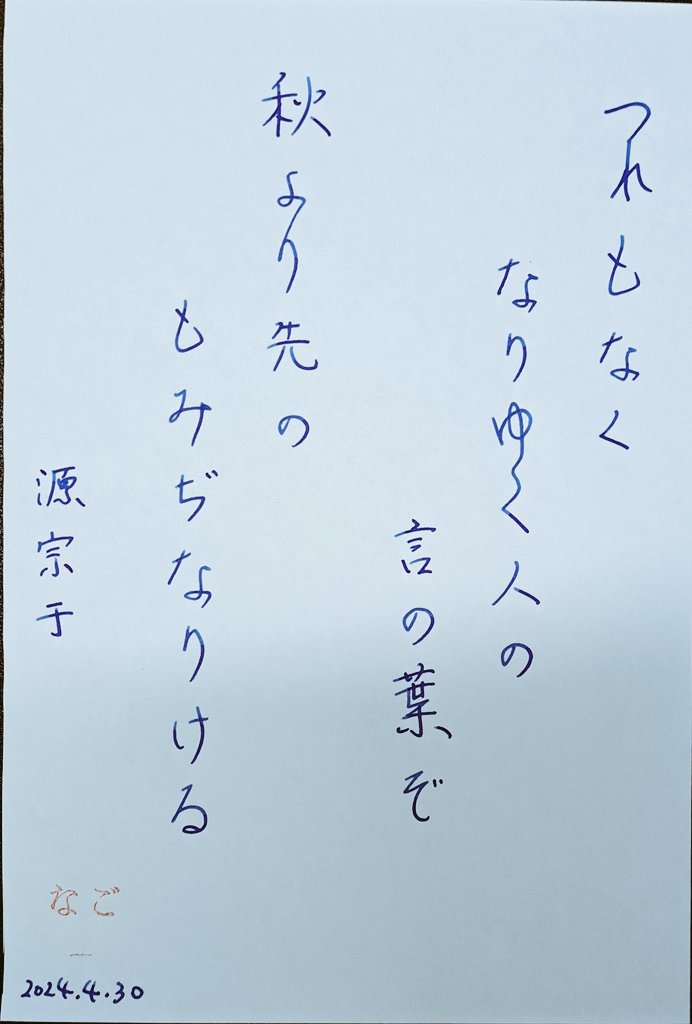 つれもなく
なりゆく人の
言の葉ぞ
秋より先の
もみぢなりける
源宗于
なご
2024.4.30